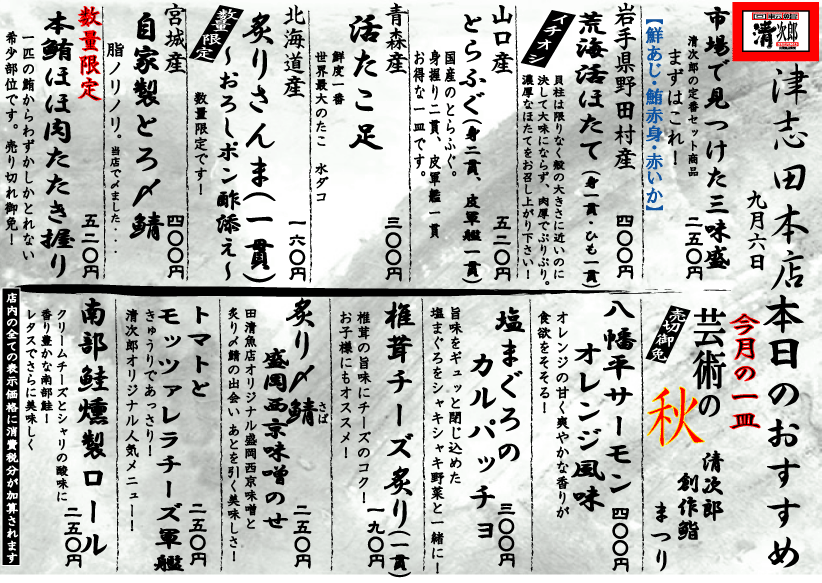 回転鮨
清次郎
津志田本店本日のおすすめ
九月六日
市場で見つけた三味盛
二五〇円
清次郎の定番セット商品
まずはこれ！
【鮮あじ・鮪赤身・赤いか】
岩手県野田村産
荒海活ほたて（身一貫・ひも一貫）
四〇〇円
イチオシ
貝柱は限りなく殻の大きさに近いのに
決して大味にならず、肉厚でぷりぷり。
濃厚なほたてをお召し上がり下さい！
山口産
とらふぐ（身二貫、皮軍艦一貫）
五二〇円
国産のとらふぐ。
身握り二貫、皮軍艦一貫
お得な一皿です。
青森産
活たこ足
三〇〇円
鮮度一番
世界最大のたこ　水ダコ
北海道産
炙りさんま（一貫）
～おろしポン酢添え～
一六〇円
数量限定
数量限定です！
宮城産
自家製とろ〆鯖
四〇〇円
脂ノリノリ。当店で〆ました・・・
数量限定
本鮪ほほ肉たたき握り
五二〇円
一匹の鮪からわずかしかとれない
希少部位です。売り切れ御免！
今月の一皿
芸術の
秋
売切御免
清次郎
創作鮨
まつり
八幡平サーモン
オレンジ風味
四〇〇円
オレンジの甘く爽やかな香りが
食欲をそそる！
塩まぐろの
カルパッチョ
三〇〇円
旨味をギュッと閉じ込めた
塩まぐろをシャキシャキ野菜と一緒に！
椎茸チーズ炙り（一貫）
一九〇円
椎茸の旨味にチーズのコク！
お子様にもオススメ！
炙り〆鯖
さば
盛岡西京味噌のせ
二五〇円
田清魚店オリジナル盛岡西京味噌と
炙り〆鯖の出会い　あとを引く美味しさ！
トマトと
モッツァレラチーズ軍艦
二五〇円
きゅうりであっさり！
清次郎オリジナル人気メニュー！
南部鮭燻製ロール
二五〇円
クリームチーズとシャリの酸味に
香り豊かな南部鮭！
レタスでさらに美味しく
店内の全ての表示価格に消費税分が加算されます